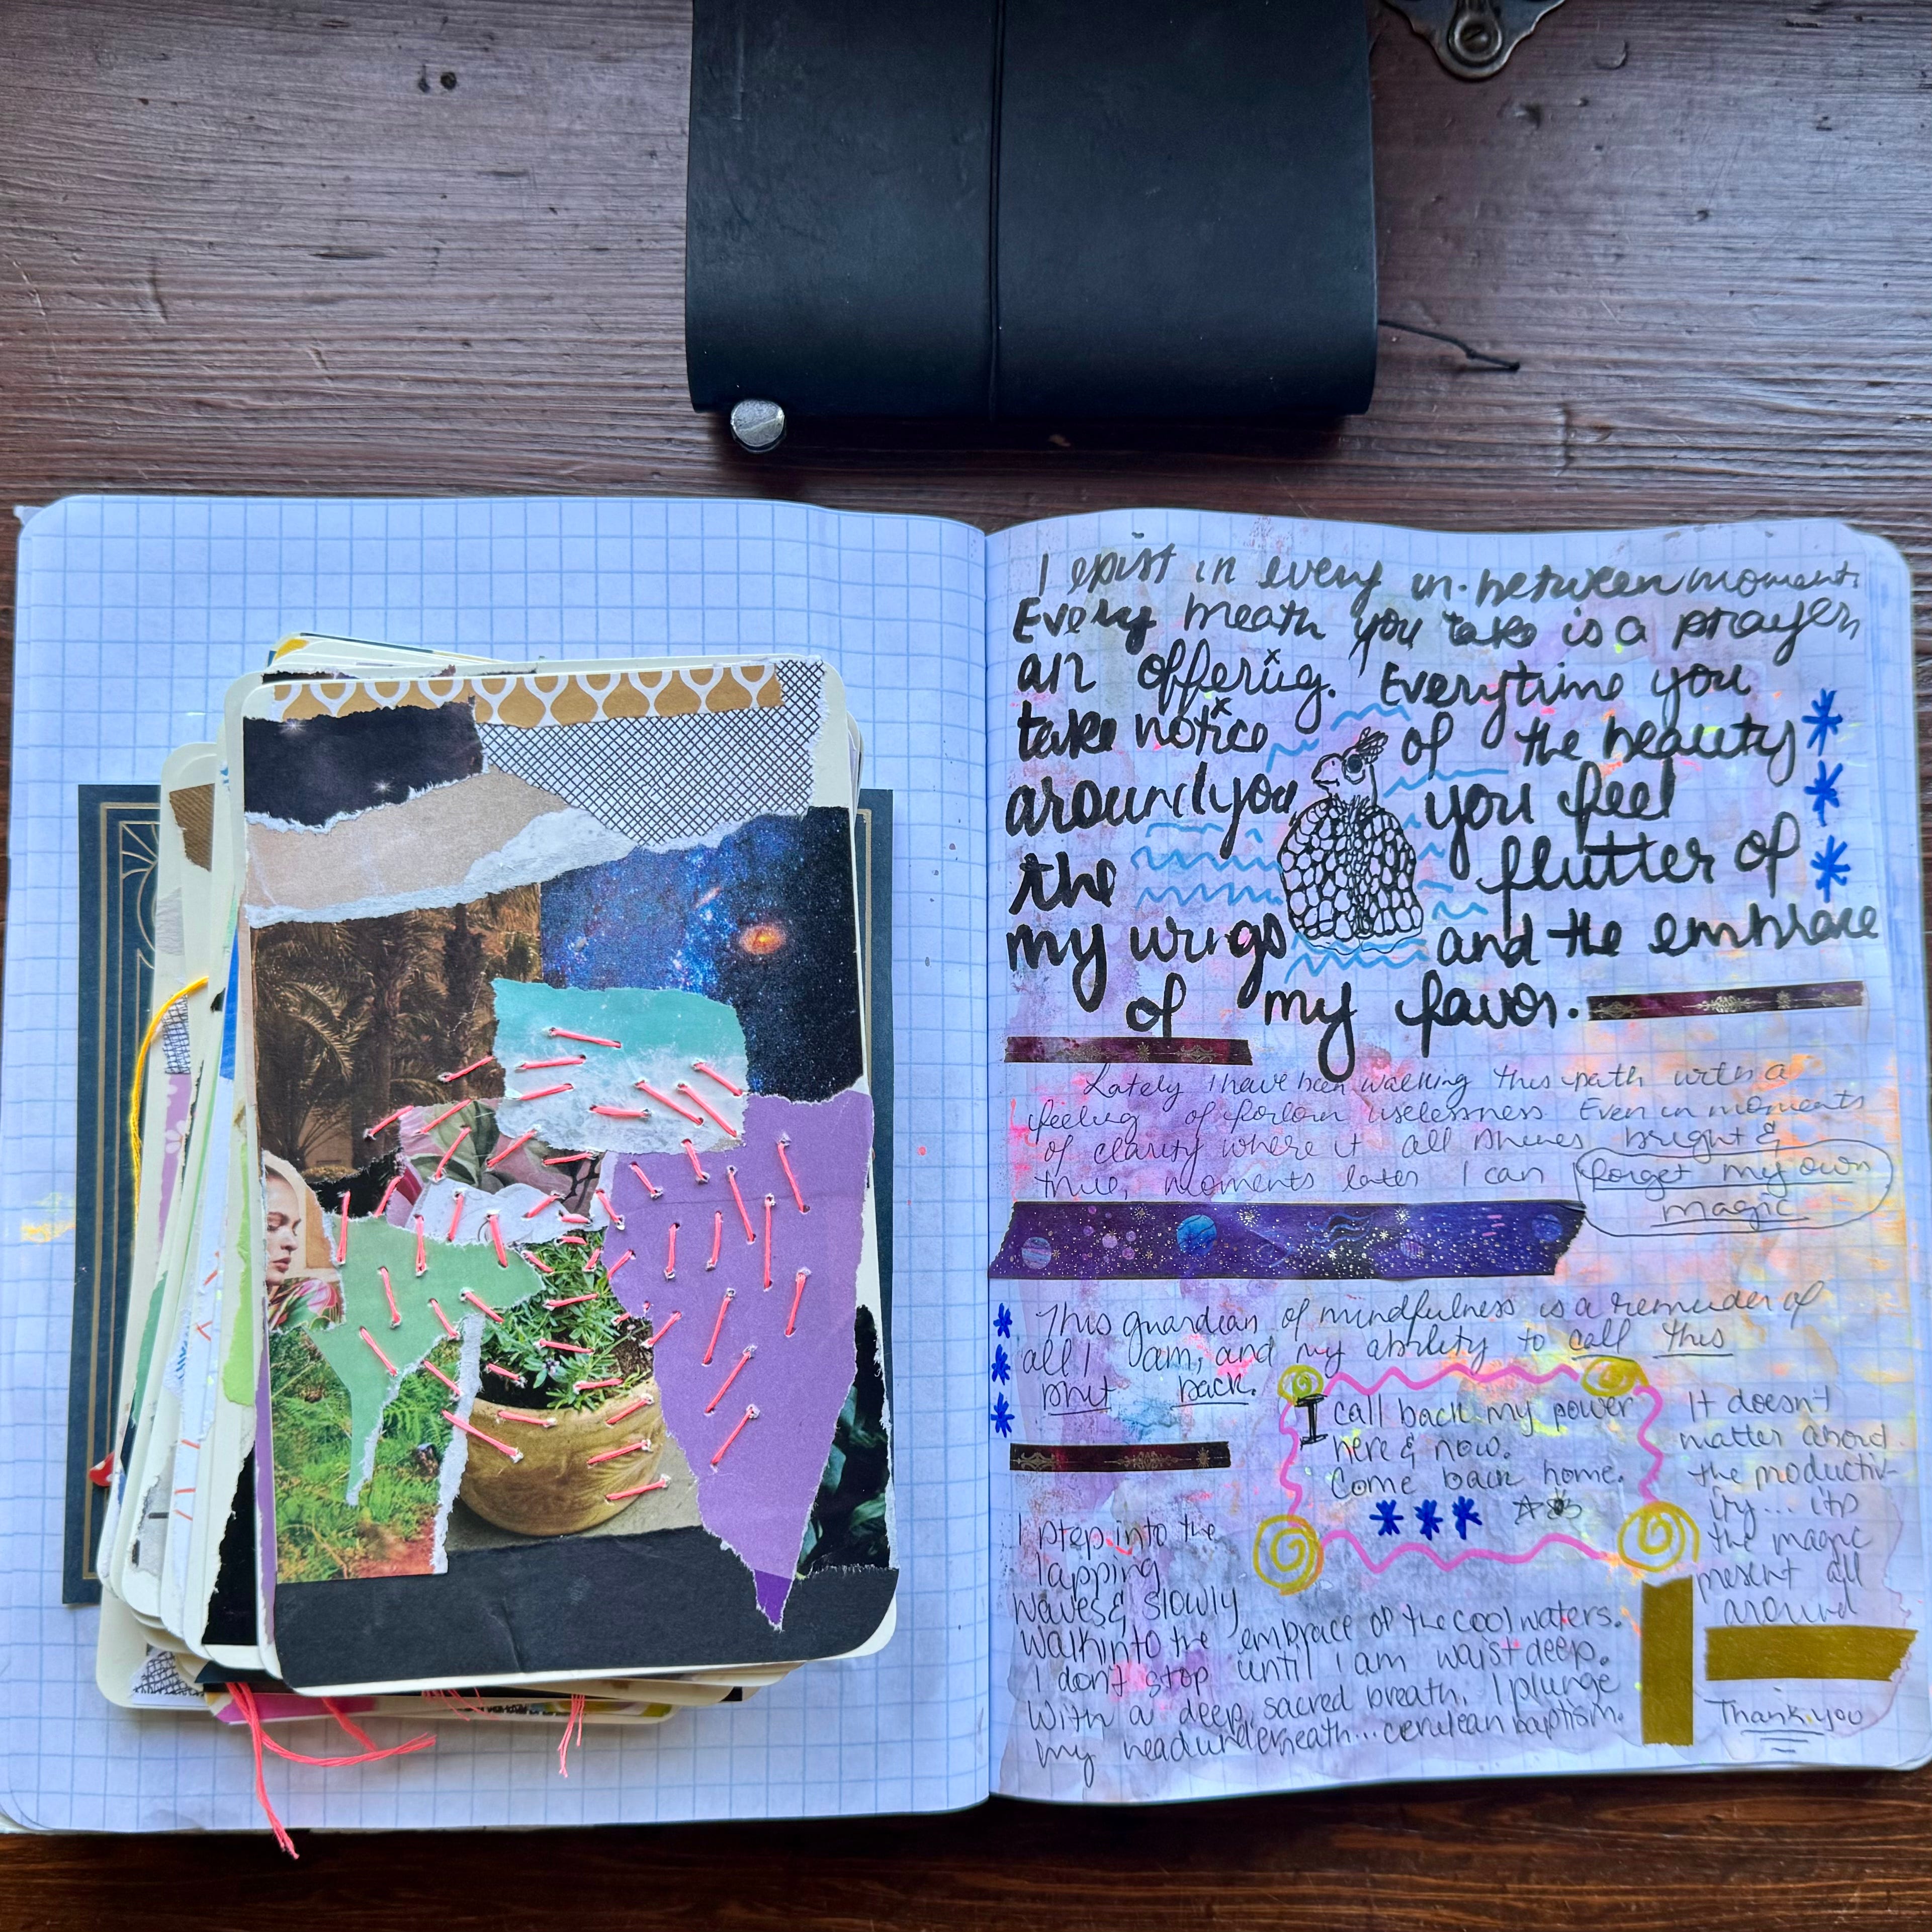 I exist in every in-between moment.
Every breath you take is a prayer
an offering. Everytime you
take notice of the beauty
around you you feel
the flutter of
my wings and the embrace
of my favor.
Lately I have been walking this path with a
feeling of forlorn uselessness. Even in moments
of clarity where it all shines bright &
true, moments later I can forget my own
magic.
This guardian of mindfulness is a reminder of
all I am, and my ability to call this
back.
I call back my power
here & now.
Come back home.
It doesn't
matter about
the productiv-
ity... its
the magic
present all
around
Thank you
I step into the
lapping
waves & slowly
walk into the embrace of the cool waters.
I don't stop until I am waist deep.
With a deep, sacred breath, I plunge
my head underneath... cerulean baptism.